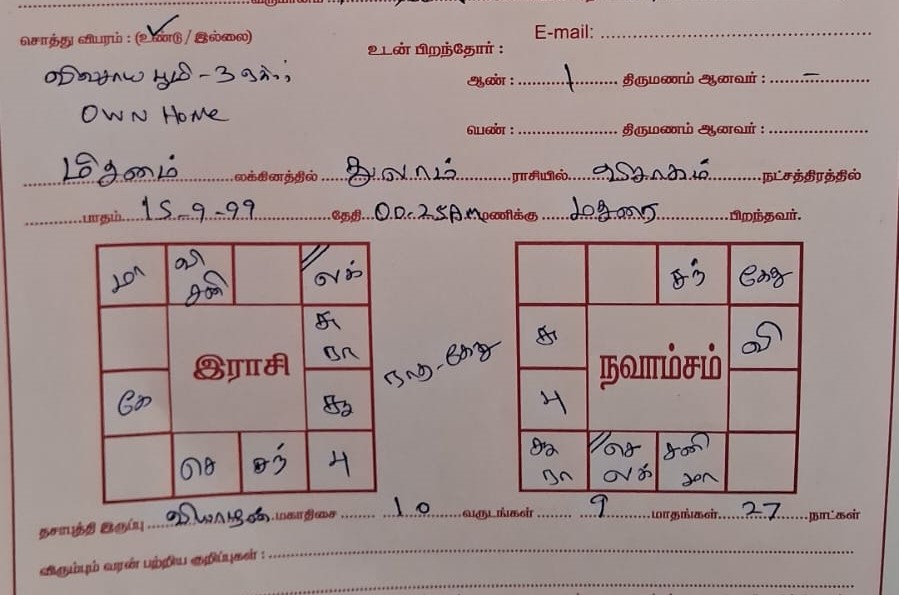 சொத்து விபரம் : (உண்டு / இல்லை)
E-mail:
உடன் பிறந்தோர் :
விவசாய பூமி - 3 ஏக்
ஆண் : 1 திருமணம் ஆனவர் : -
OWN HOME
பெண் : திருமணம் ஆனவர் :
மிதுனம் லக்கினத்தில் துலாம் ராசியில் விசாகம் நட்சத்திரத்தில்
பாதம் 15-9-99 தேதி 00.25AM மணிக்கு மதுரை பிறந்தவர்.
மா வி சனி லக் சந் கேது
சு ரா சு வி
இராசி நவாம்சம்
கே சூ பு
செ சந் பு சூ ரா செ லக் சனி மா
தசாபுத்தி இருப்பு வியாழன் மகாதிசை 10 வருடங்கள் 9 மாதங்கள் 27 நாட்கள்
விரும்பும் வரன் பற்றிய குறிப்புகள் :